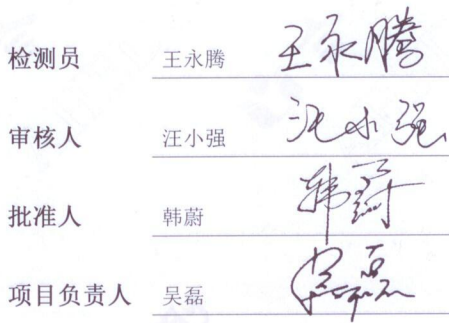 检测员 王永腾 王永腾
审核人 汪小强 汪小强
批准人 韩蔚 韩蔚
项目负责人 吴磊 吴磊